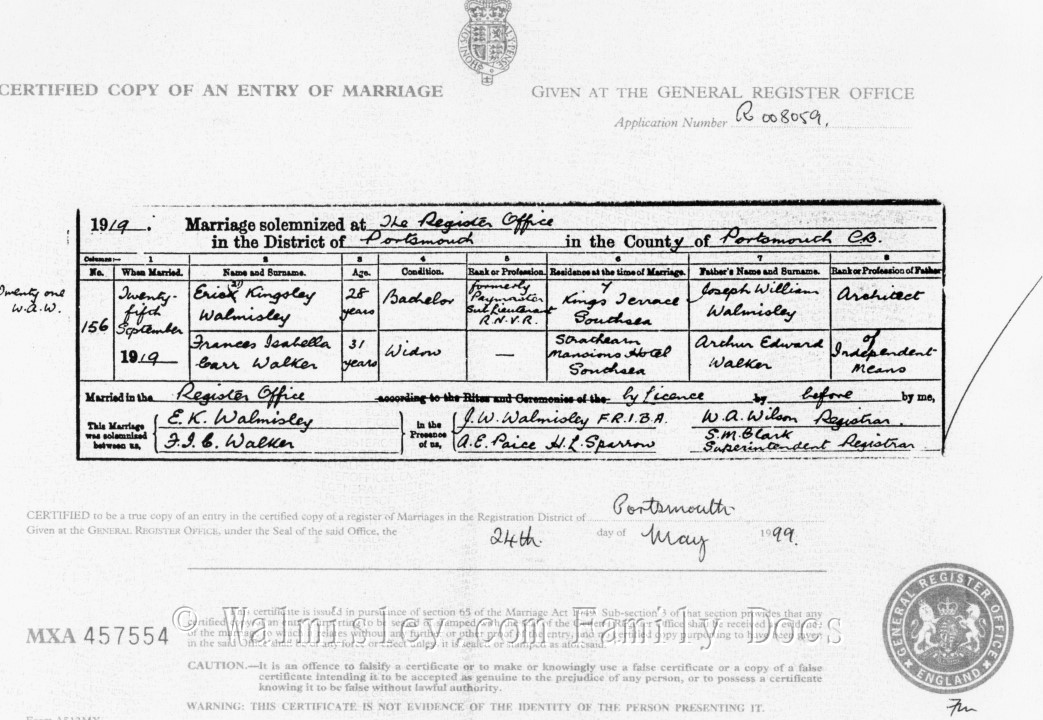 HONI SOIT QUI MAL Y PENSE
CERTIFIED COPY OF AN ENTRY OF MARRIAGE GIVEN AT THE GENERAL REGISTER OFFICE
Application Number R 008059.
1919. Marriage solemnized at The Register Office
in the District of Portsmouth in the County of Portsmouth C.B.
Columns:— 1 2 3 4 5 6 7 8
No. When Married. Name and Surname. Age. Condition. Rank or Profession. Residence at the time of Marriage. Father's Name and Surname. Rank or Profession of Father
Twenty one
W.A.W.
156
Twenty-
fifth
September
1919
Eric Kingsley
Walmisley
28
years
Bachelor
formerly
Paymaster
Sub Lieutenant
R.N.V.R.
7
Kings Terrace
Southsea
Joseph William
Walmisley
Architect
Frances Isabella
Carr Walker
31
years
Widow
—
Strathearn
Mansions Hotel
Southsea
Arthur Edward
Walker
of
Independent
Means
Married in the Register Office according to the Rites and Ceremonies of the by Licence by before by me,
This Marriage
was solemnized
between us,
E. K. Walmisley
F. I. C. Walker
In the
Presence
of us,
J. W. Walmisley F.R.I.B.A.
A. E. Paice H. L. Sparrow
W. A. Wilson Registrar.
S. M. Clark
Superintendent Registrar
CERTIFIED to be a true copy of an entry in the certified copy of a register of Marriages in the Registration District of Portsmouth
Given at the GENERAL REGISTER OFFICE, under the Seal of the said Office, the 24th day of May 1999.
This certificate is issued in pursuance of section 65 of the Marriage Act 1949. Sub-section 3 of that section provides that any
© Walmisley.com Family Docs
MXA 457554
in the said Office shall be of any force or effect unless it is sealed or stamped as aforesaid.
CAUTION.—It is an offence to falsify a certificate or to make or knowingly use a false certificate or a copy of a false
certificate intending it to be accepted as genuine to the prejudice of any person, or to possess a certificate
knowing it to be false without lawful authority.
WARNING: THIS CERTIFICATE IS NOT EVIDENCE OF THE IDENTITY OF THE PERSON PRESENTING IT.
GENERAL REGISTER OFFICE
ENGLAND